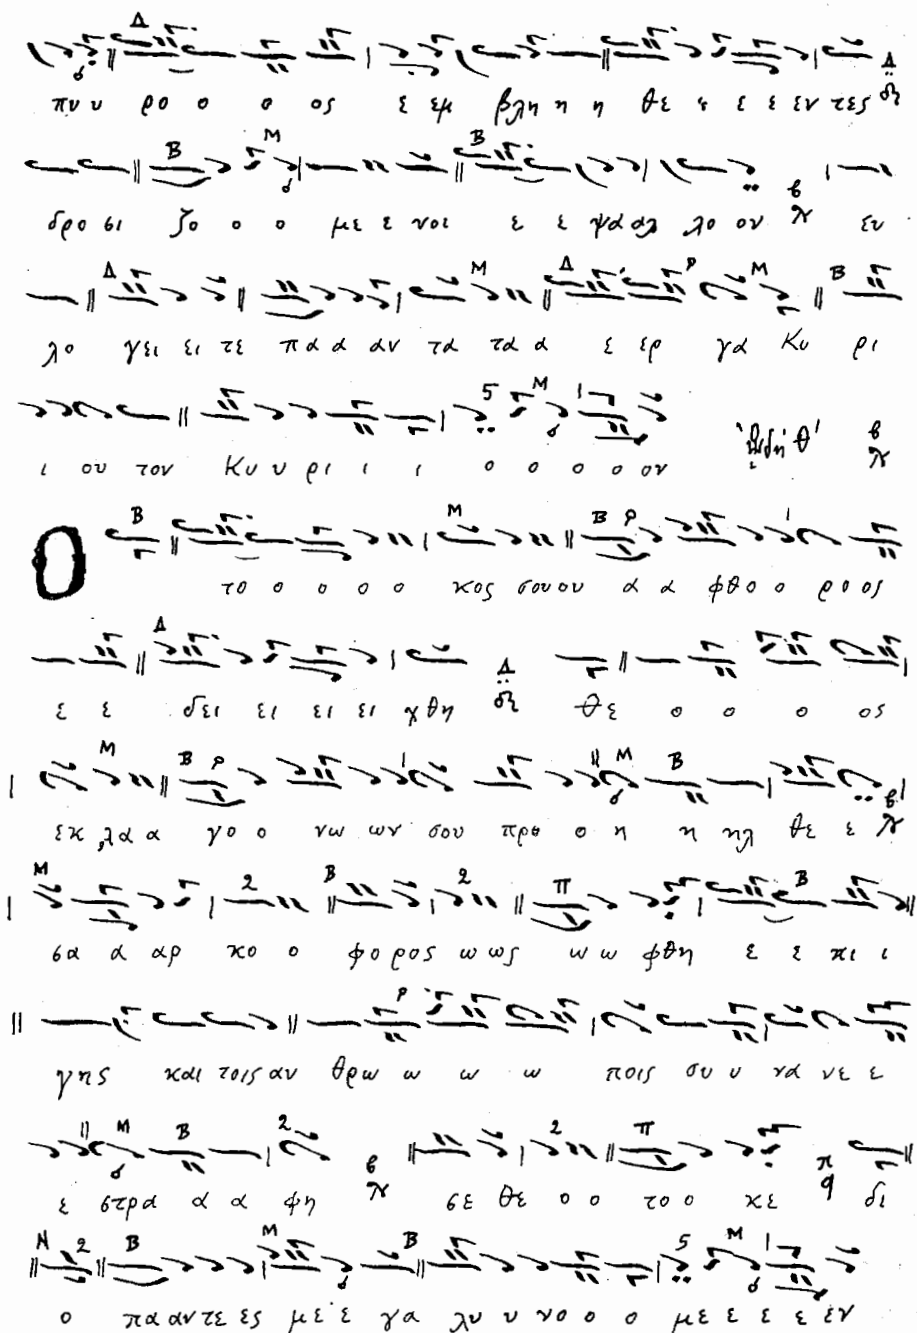 πυ υ ρο ο ο ος ε εμ βλη η η θε ε ε ε εν τες
δρο σι ζο ο ο με ε νοι ε ε ψα αλ λο ον ευ
λο γει ει τε πα α αν τα τα α ε ερ γα Κυ ρι
ι ου τον Κυ υ ρι ι ι ο ο ο ο ον ᾨδὴ θ'
Ο το ο ο ο ο κος σου ου α α φθο ο ρο ος
ε ε δει ει ει ει χθη θε ο ο ο ος
εκ λα α γο ο νω ων σου προ ο η η ηλ θε ε
σα α αρ κο ο φο ρος ω ως ω ω φθη ε ε πι ι
γης και τοις αν θρω ω ω ω ποις συ υ να νε ε
ε στρα α α φη σε θε ο ο το ο κε δι
ο πα αν τε ες με ε γα λυ υ νο ο ο με ε ε ε εν